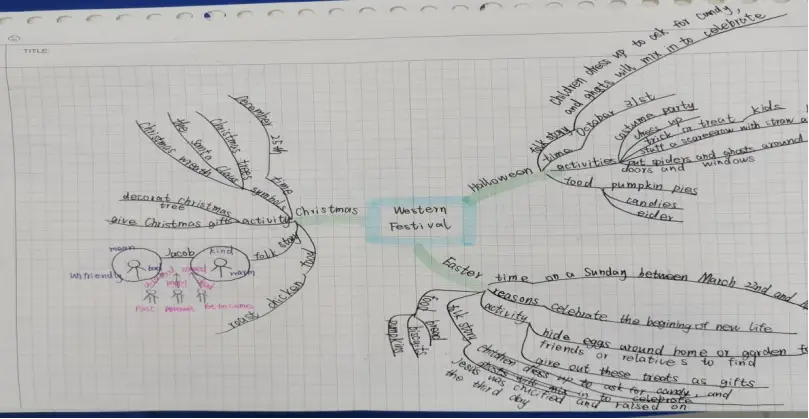 TITLE:
Western
Festival
Halloween
folk story
Children dress up to ask for candy,
and ghosts will mix in to celebrate
time
October 31st
activities
costume party
dress up
trick or treat
kids
stuff a scarecrow with straw
put spiders and ghosts around
doors and windows
food
pumpkin pies
candies
eider
Easter
time on a Sunday between March 22nd and
reasons celebrate the begining of new life
activity
hide eggs around home or garden
friends or relatives to find
give out these treats as gifts
folk story
children dress up to ask for candy, and
ghosts will mix in to celebrate
Jesus was crucified and raised on
the third day
food
bread
biscuits
pumpkins
Christmas
time
December 25th
symbols
Christmas trees
the Santa Claus
Christmas wreath
activity
decorat Christmas
tree
give Christmas gift
folk story
mean
Jacob
kind
unfriendly
warm
food
roast chicken